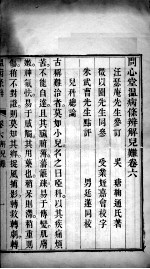 問心堂溫病條辨解兒難卷六
汪瑟庵先生參訂 吳瑭鞠通氏著
徵以園先生同參 受業姪嘉會校字
朱武曹先生點評 男廷蓮同校
兒科總論
古稱難治者莫如小兒名之曰啞科以其疾痛煩
苦不能自達且其臟腑薄藩籬疎易於傳變肌膚
嫩神氣怯易於感觸其用藥也稍呆則滯稍重則
傷稍不對證則莫知其鄉捉風捕影轉救轉劇轉